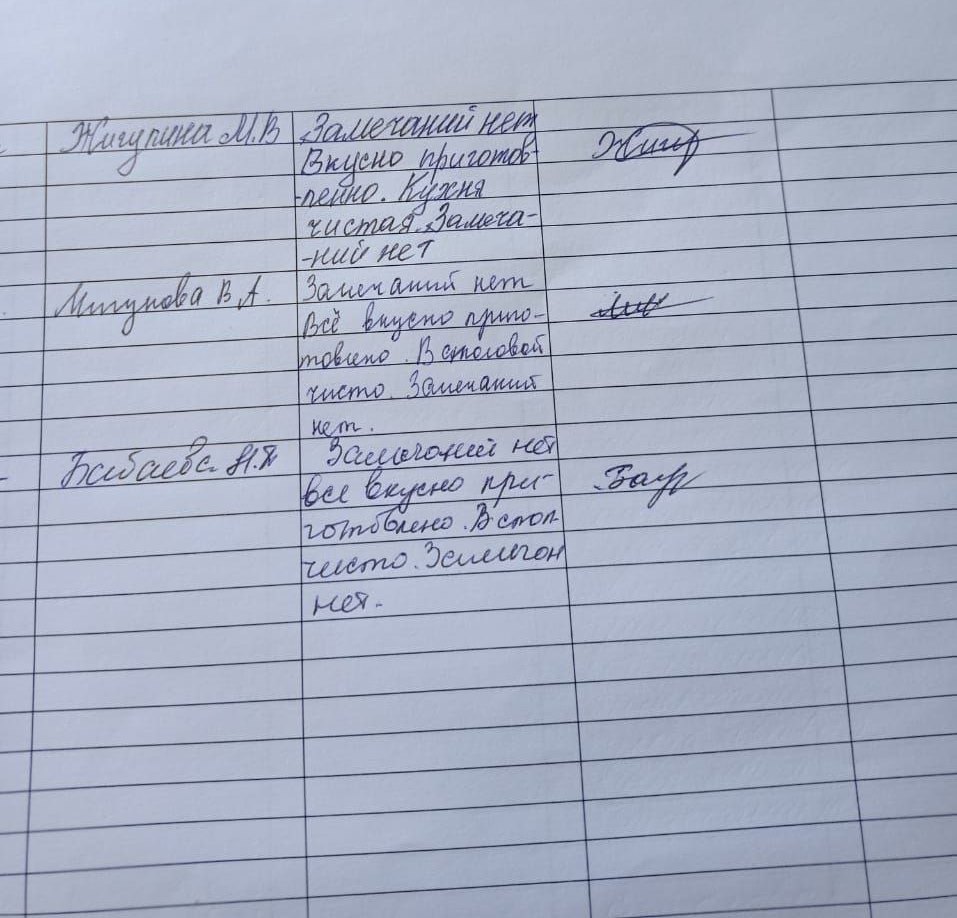 Жигулина М.В
Замечаний нет
Вкусно приготов-
-ленно. Кухня
чистая. Замеча-
-ний нет
Мигунова В.А.
Замечаний нет
Всё вкусно приго-
товлено. В столовой
чисто. Замечаний
нет.
Бабаева Н.П
Замечаний нет
все вкусно при-
готовлено. В стол
чисто. Замечан
нет.